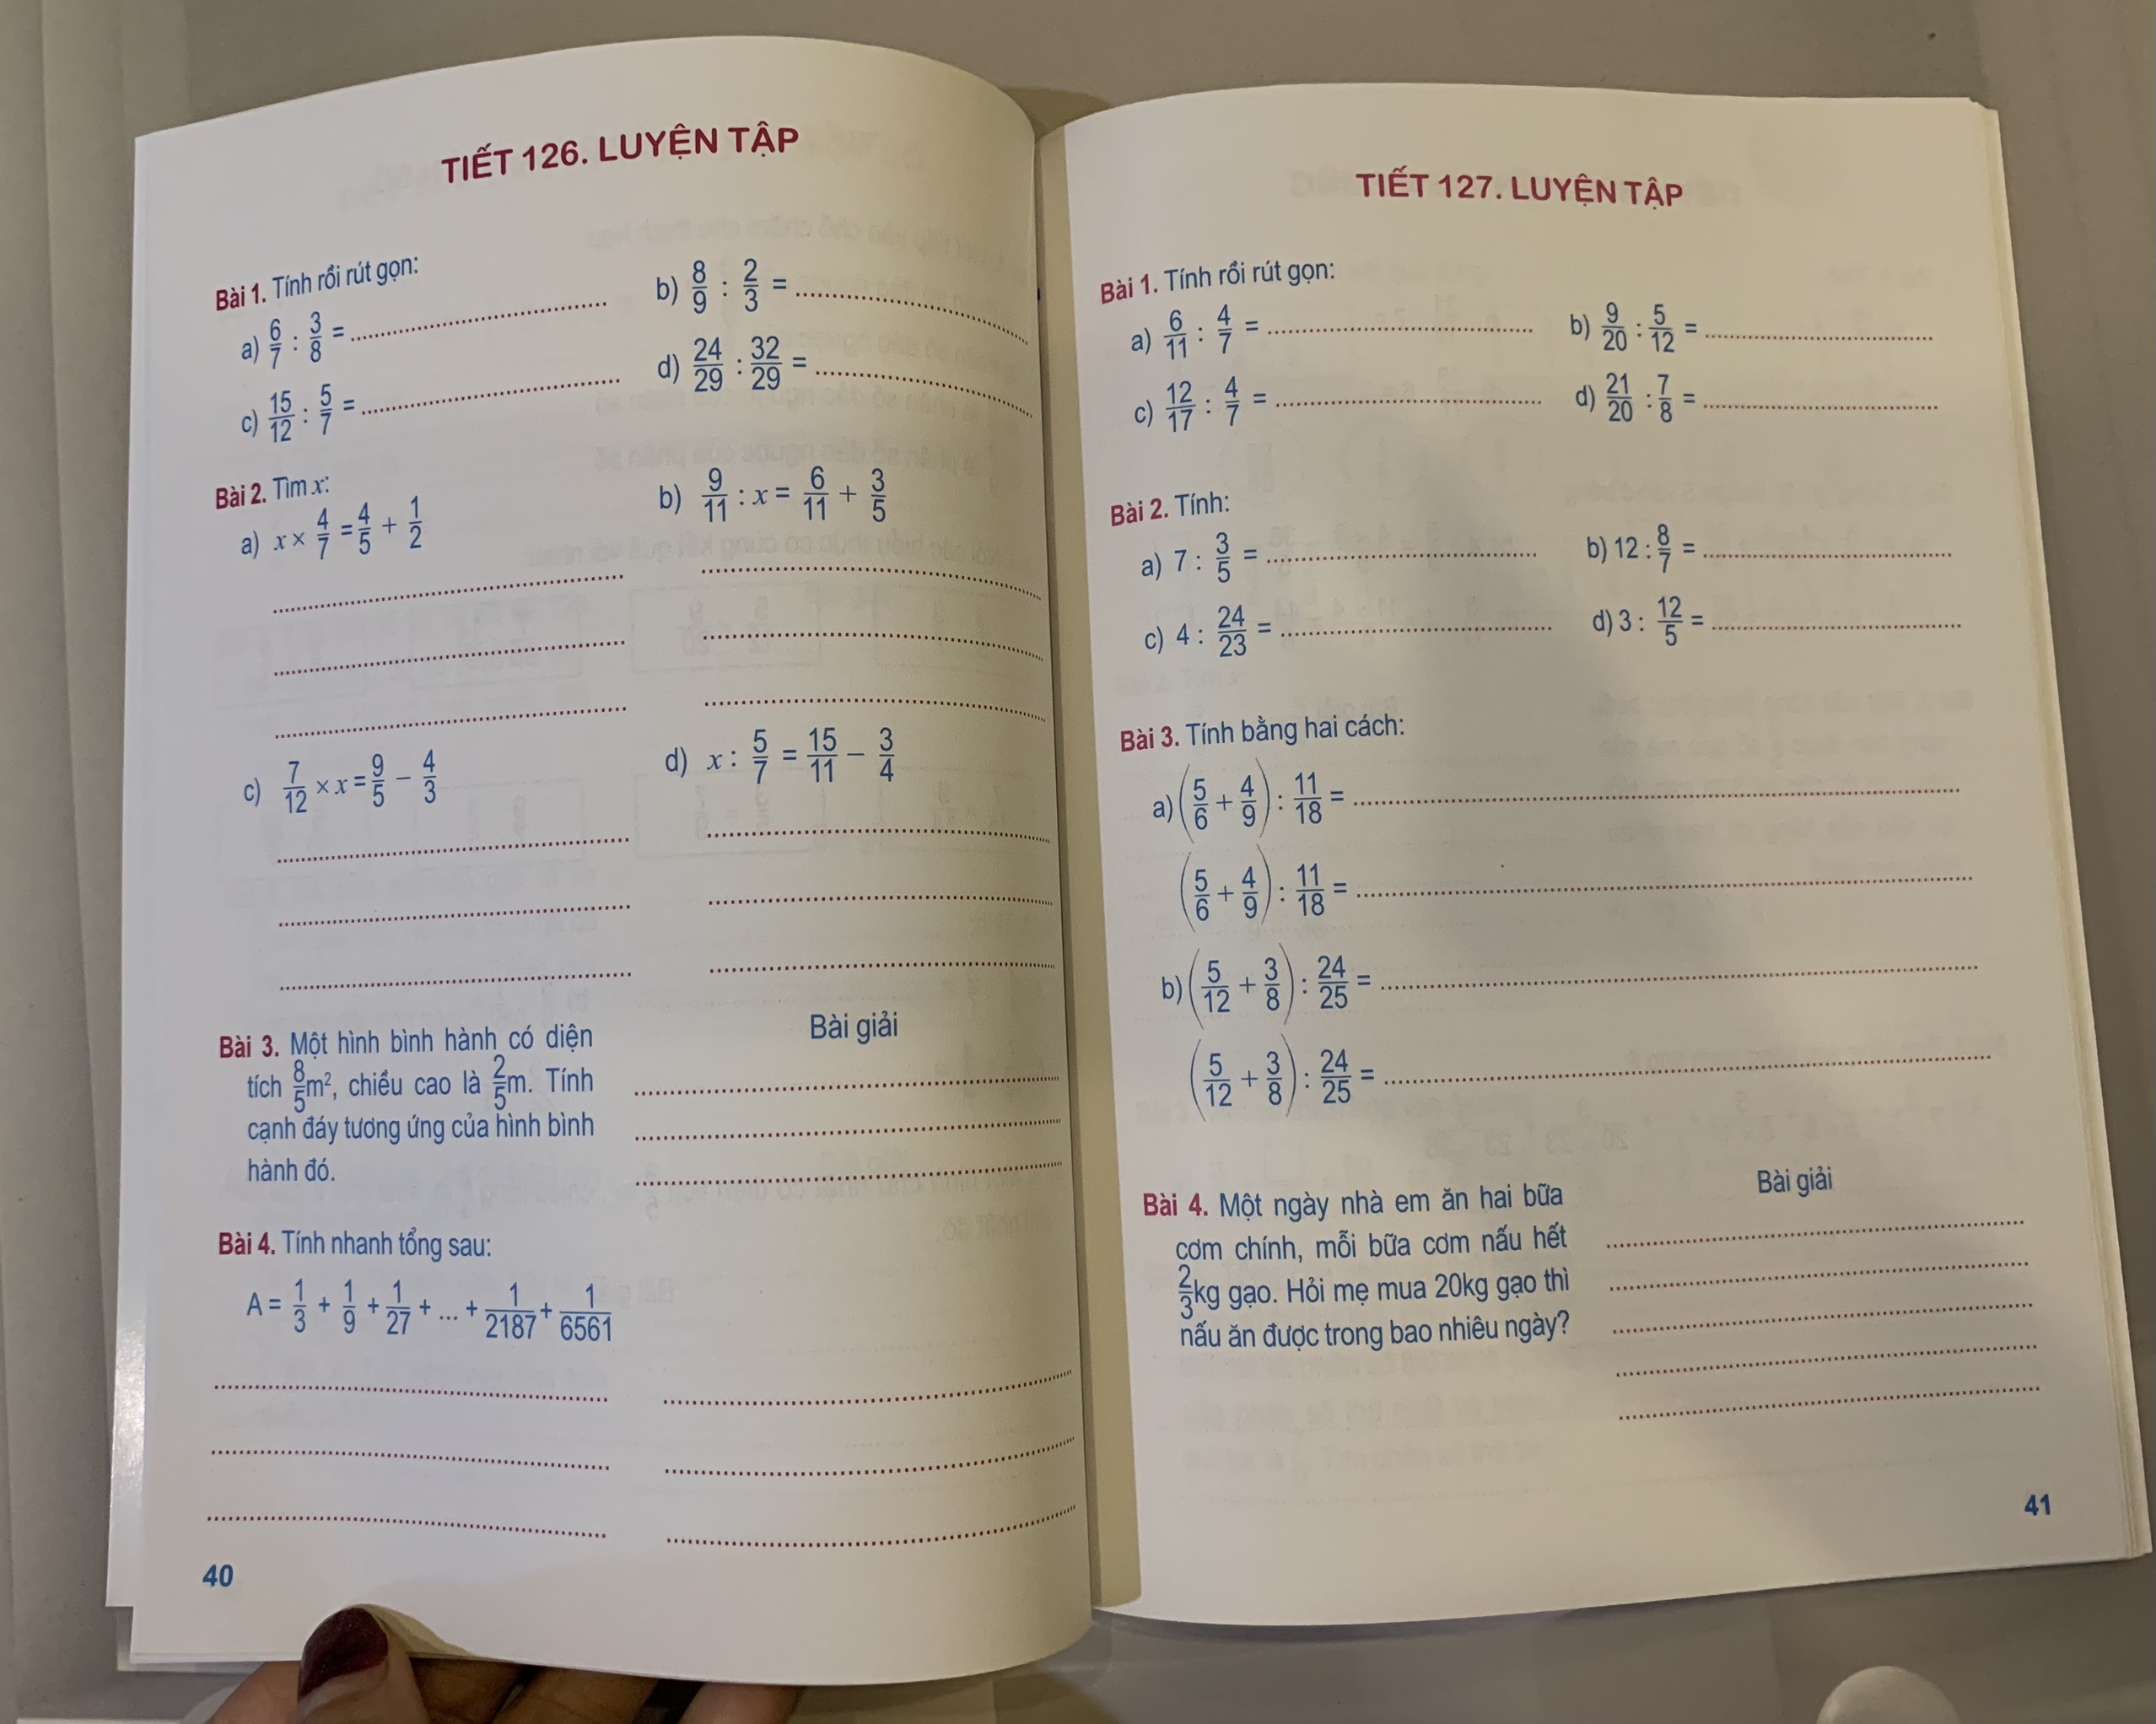 TIẾT 126. LUYỆN TẬP
Bài 1. Tính rồi rút gọn:
a) 6/7 : 3/8 = ........................
b) 8/9 : 2/3 = ........................
c) 15/12 : 5/7 = ........................
d) 24/29 : 32/29 = ........................
Bài 2. Tìm x:
a) x × 4/7 = 4/5 + 1/2
b) 9/11 : x = 6/11 + 3/5
c) 7/12 × x = 9/5 − 4/3
d) x : 5/7 = 15/11 − 3/4
Bài 3. Một hình bình hành có diện
tích 8/5m², chiều cao là 2/5m. Tính
cạnh đáy tương ứng của hình bình
hành đó.
Bài giải
Bài 4. Tính nhanh tổng sau:
A = 1/3 + 1/9 + 1/27 + ... + 1/2187 + 1/6561
40
TIẾT 127. LUYỆN TẬP
Bài 1. Tính rồi rút gọn:
a) 6/11 : 4/7 = ........................
b) 9/20 : 5/12 = ........................
c) 12/17 : 4/7 = ........................
d) 21/20 : 7/8 = ........................
Bài 2. Tính:
a) 7 : 3/5 = ........................
b) 12 : 8/7 = ........................
c) 4 : 24/23 = ........................
d) 3 : 12/5 = ........................
Bài 3. Tính bằng hai cách:
a) (5/6 + 4/9) : 11/18 = ........................
(5/6 + 4/9) : 11/18 = ........................
b) (5/12 + 3/8) : 24/25 = ........................
(5/12 + 3/8) : 24/25 = ........................
Bài 4. Một ngày nhà em ăn hai bữa
cơm chính, mỗi bữa cơm nấu hết
2/3kg gạo. Hỏi mẹ mua 20kg gạo thì
nấu ăn được trong bao nhiêu ngày?
Bài giải
41